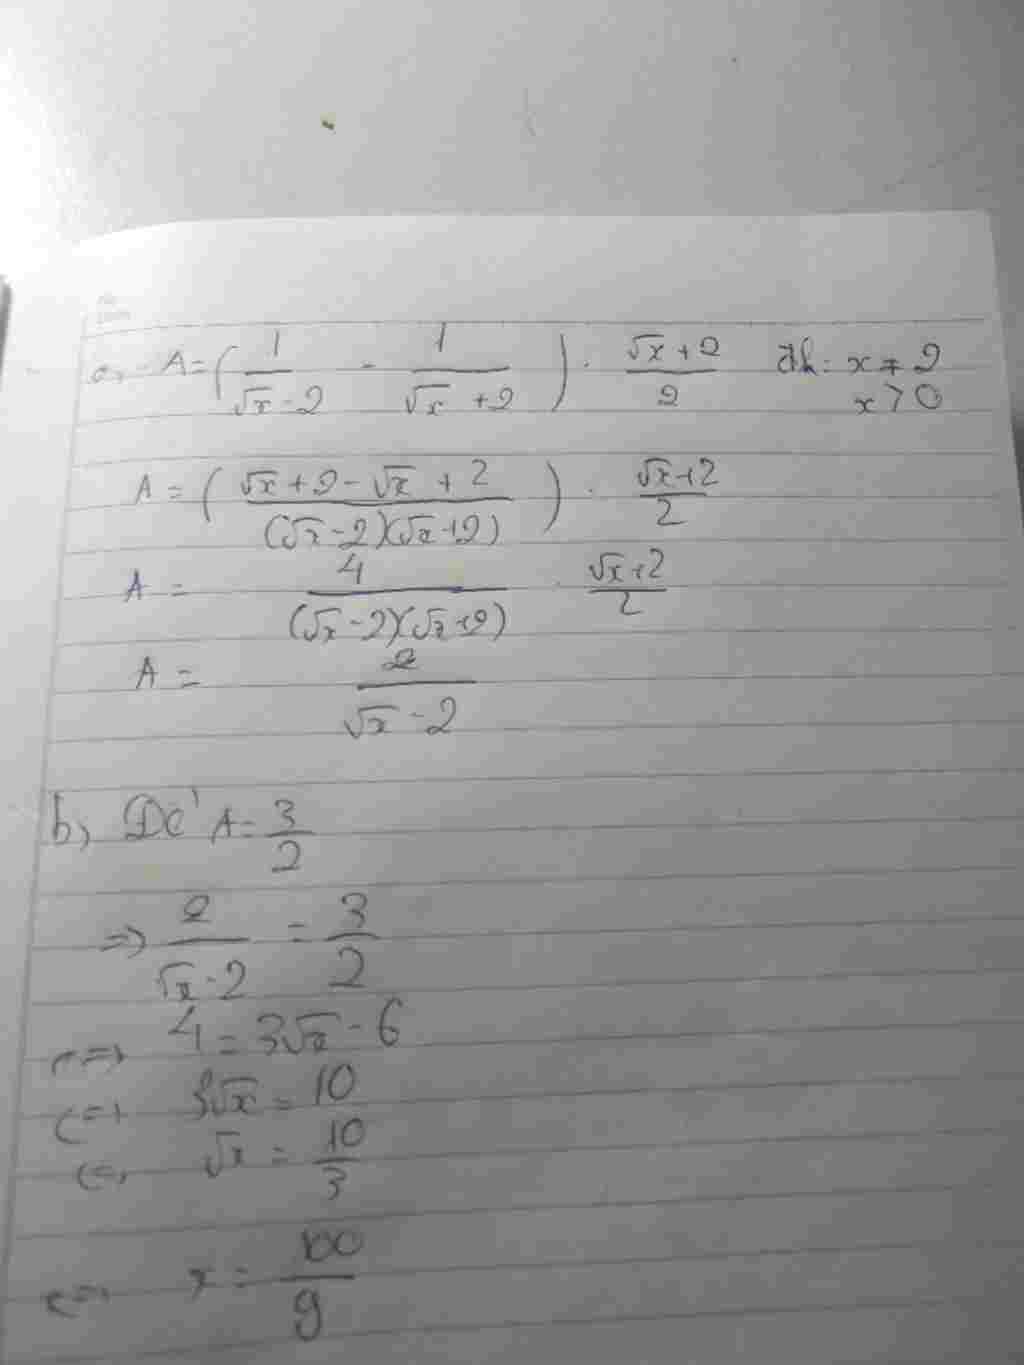 a, A = ( 1/(√x - 2) - 1/(√x + 2) ) . (√x + 2)/2 đk: x ≠ 2
x > 0
A = ( (√x + 2 - √x + 2)/((√x - 2)(√x + 2)) ) . (√x + 2)/2
A = 4/((√x - 2)(√x + 2)) . (√x + 2)/2
A = 2/(√x - 2)
b, Để A = 3/2
=> 2/(√x - 2) = 3/2
<=> 4 = 3√x - 6
<=> 3√x = 10
<=> √x = 10/3
<=> x = 100/9